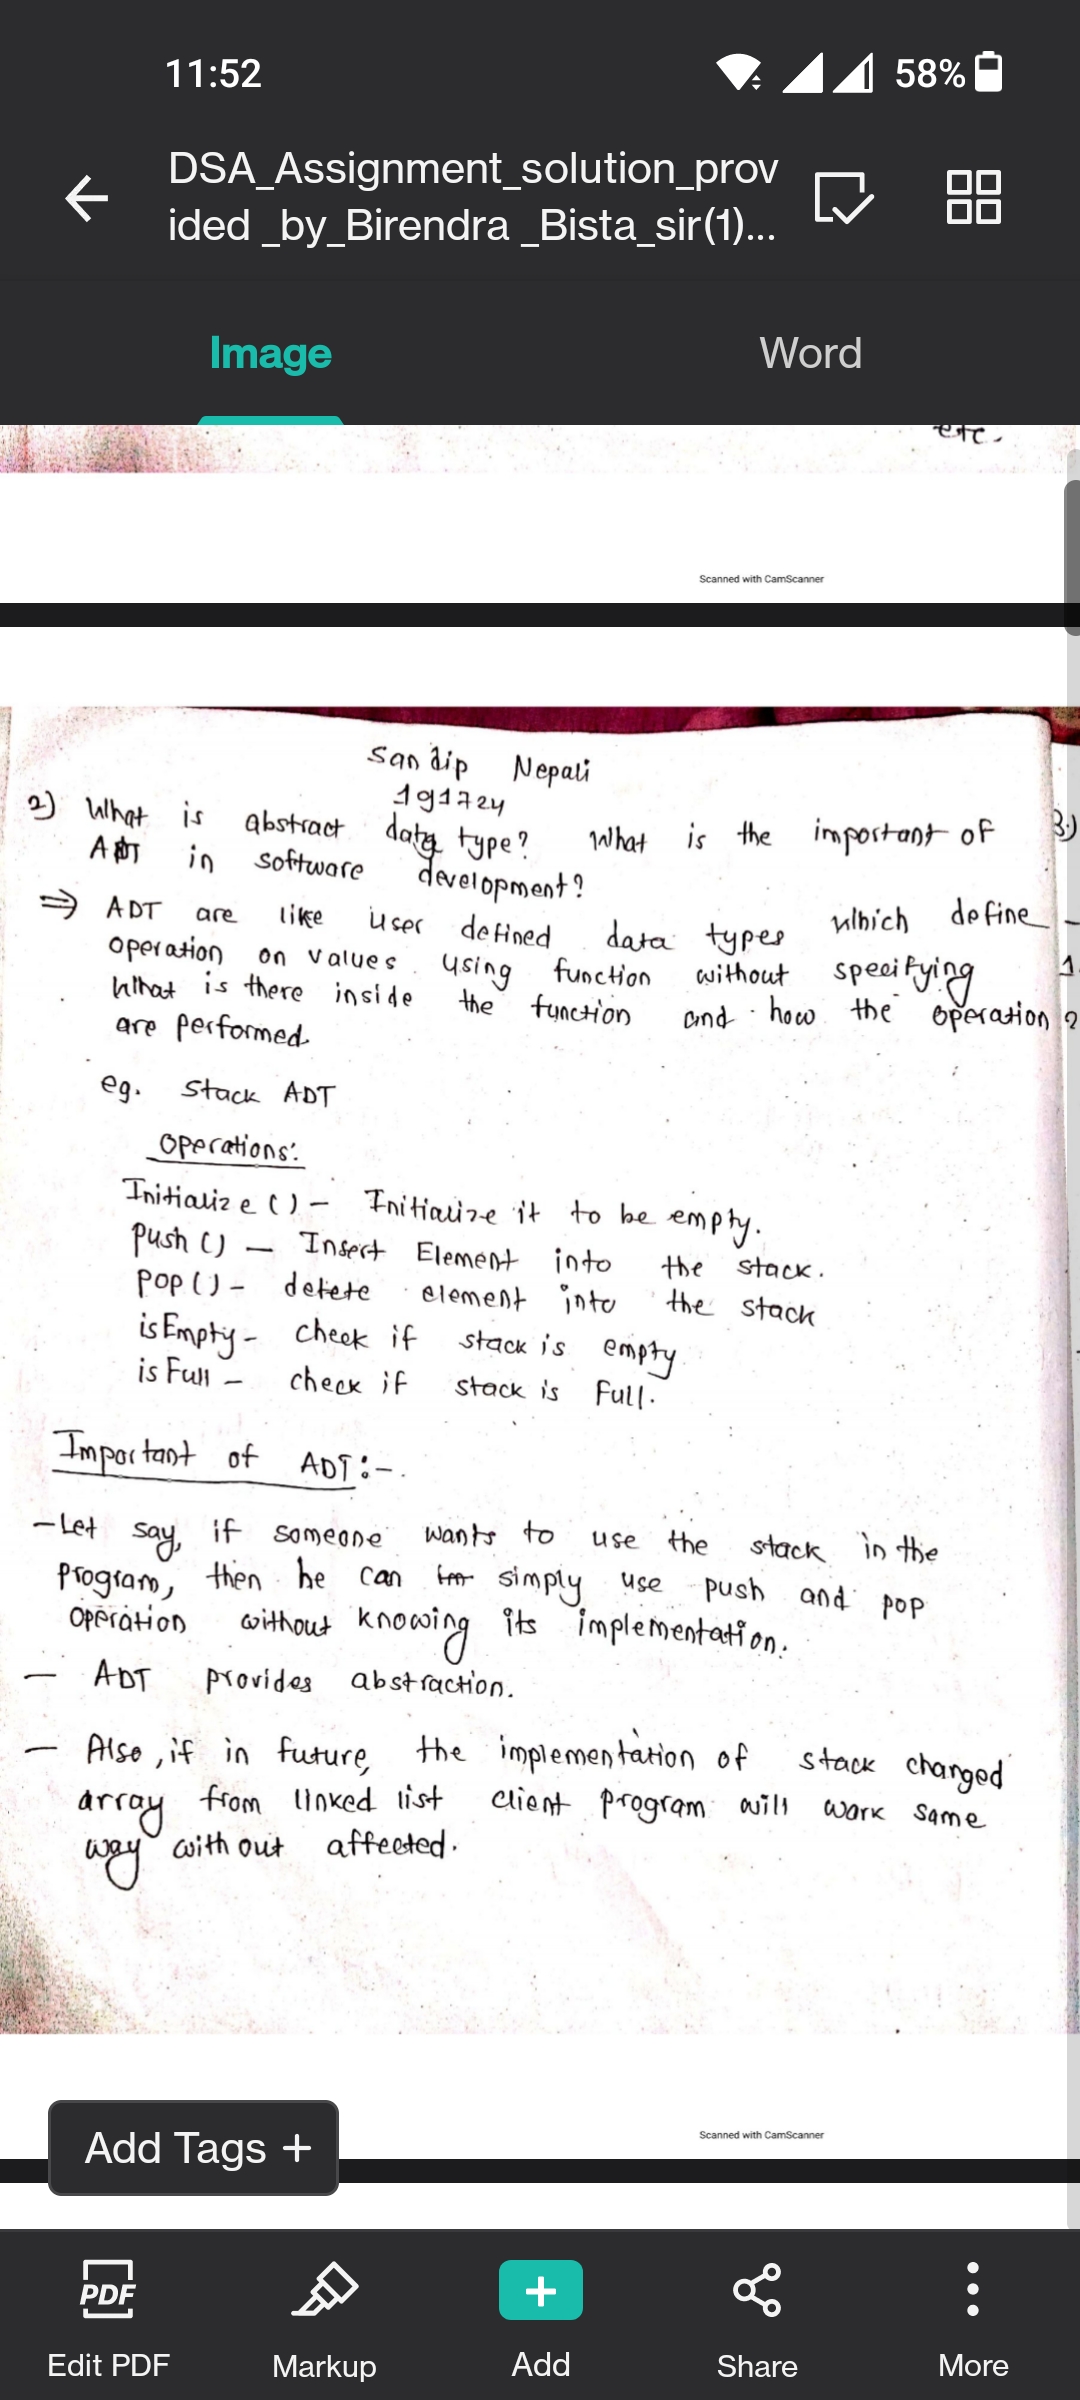 11:52
58%
DSA_Assignment_solution_prov
ided _by_Birendra _Bista_sir(1)...
Image
Word
etc.
Scanned with CamScanner
Sandip Nepali
191724
2) What is abstract data type? What is the important of
ADT in software development?
⇒ ADT are like user defined data types which define
operation on values using function without specifying
what is there inside the function and how the operation
are performed.
eg. Stack ADT
Operations:
Initialize () - Initialize it to be empty.
Push () - Insert Element into the stack.
Pop () - detete element into the stack
isEmpty - check if stack is empty
is Full - check if stack is Full.
Important of ADT :-
- Let say, if someone wants to use the stack in the
program, then he can simply use push and pop
operation without knowing its implementation.
- ADT provides abstraction.
- Also, if in future, the implementation of stack changed
array from linked list client program will work same
way with out affected.
3.)
1.
2
Scanned with CamScanner
Add Tags +
PDF
Edit PDF
Markup
Add
Share
More